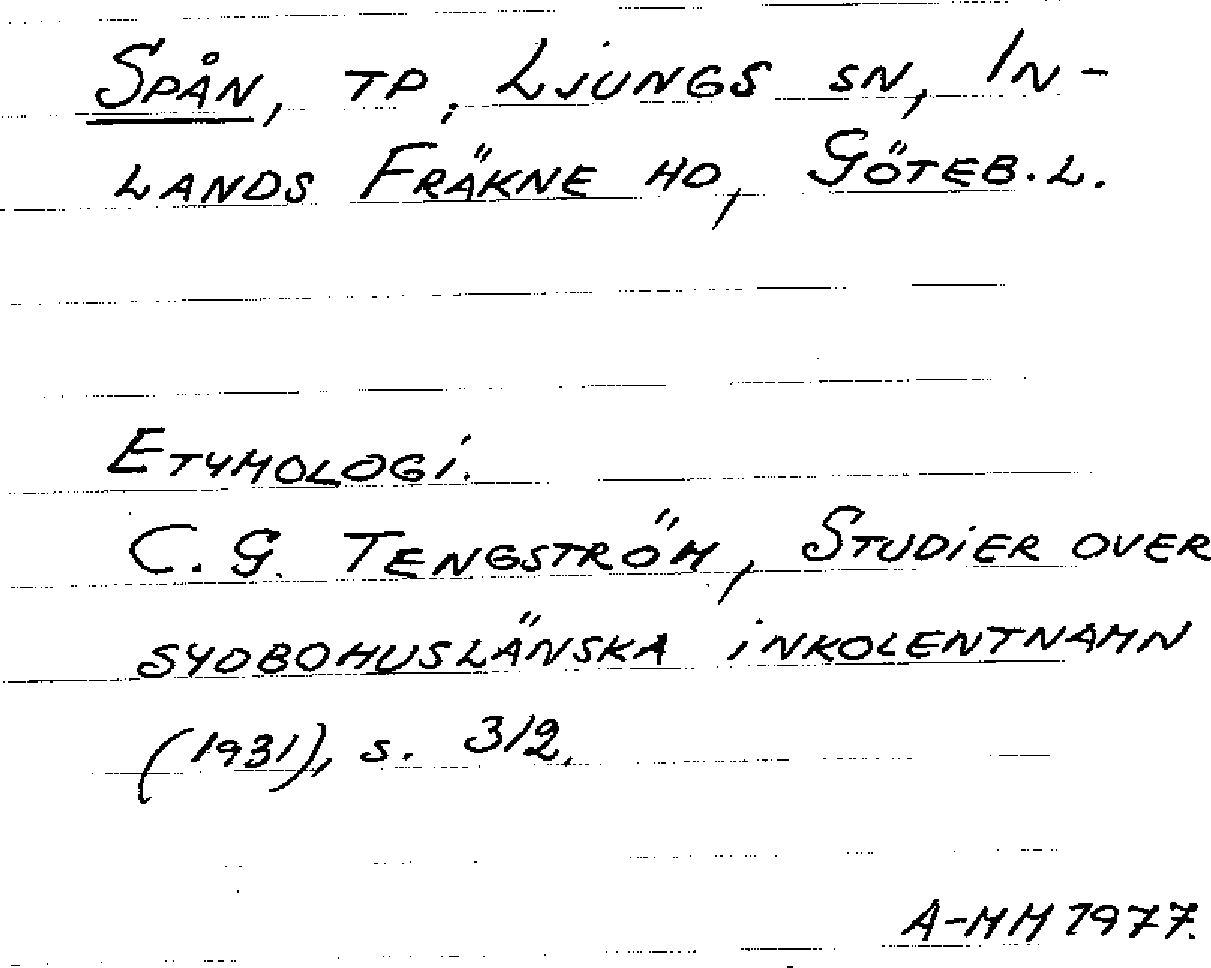 Spån, tp, Ljungs sn, In-
lands Fräkne hd, Göteb. l.
Etymologi.
C. G. Tengström, Studier over
sydbohuslänska inkolentnamn
(1931), s. 312.
A-MM 1977.